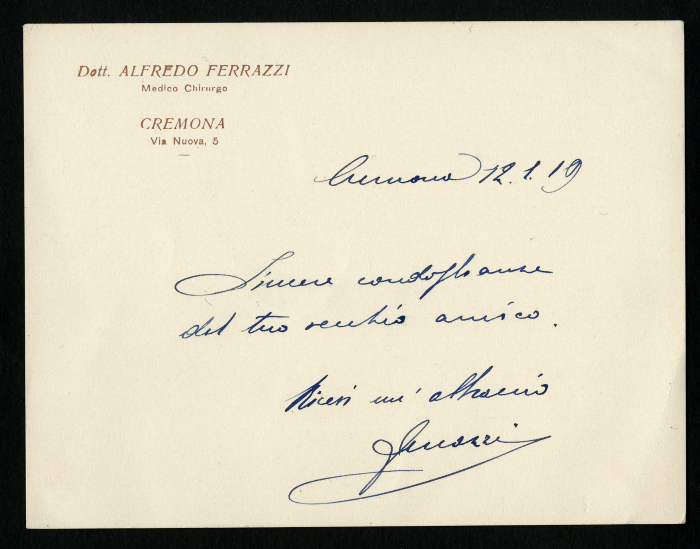 Dott. ALFREDO FERRAZZI
Medico Chirurgo
CREMONA
Via Nuova, 5
Cremona 12.1.19
Sincere condoglianze
del tuo vecchio amico.
un' abbraccio
Ferrazzi